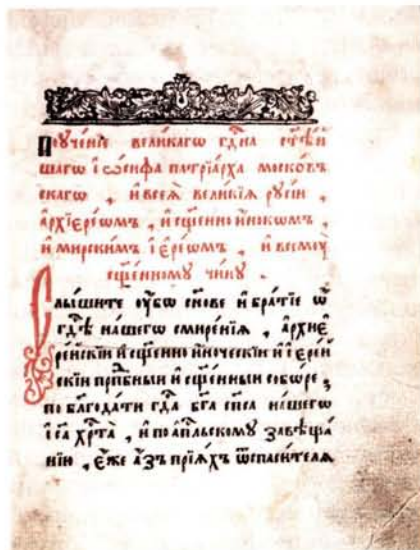 Поуче́нїе вели́кагѡ гдⷭ҇на ст҃ѣ́й
шагѡ і҆ѡ́сифа патрїа́рха моско́в
скагѡ , и҆ всеѧ̀ вели́кїѧ рꙋсі́и ,
а҆рхїере́ѡмъ , и҆ сщ҃е́нно и҆́нокѡмъ ,
и҆ мирски́мъ і҆ере́ѡмъ , и҆ всемꙋ̀
сщ҃е́нномꙋ чи́нꙋ .
Слы́шите ᲂу҆̀бѡ сн҃ове и҆ бра́тїе ѡ҆
гдⷭ҇ѣ на́шегѡ смире́нїѧ , а҆рхїе
ре́йскїи и҆ сщ҃е́нно и҆́ноческїи и҆ і҆ере́й
скїи прⷣпбныи и҆ сщ҃е́нныи собо́ре ;
по блгода́ти гдⷭ҇а бг҃а сп҃са на́шегѡ
і҆са хрⷭ҇та̀ , и҆ по а҆пⷭ҇льскомꙋ завѣща́
нїю , є҆́же а҆́зъ прїѧ́хъ ѿ спаси́телѧ